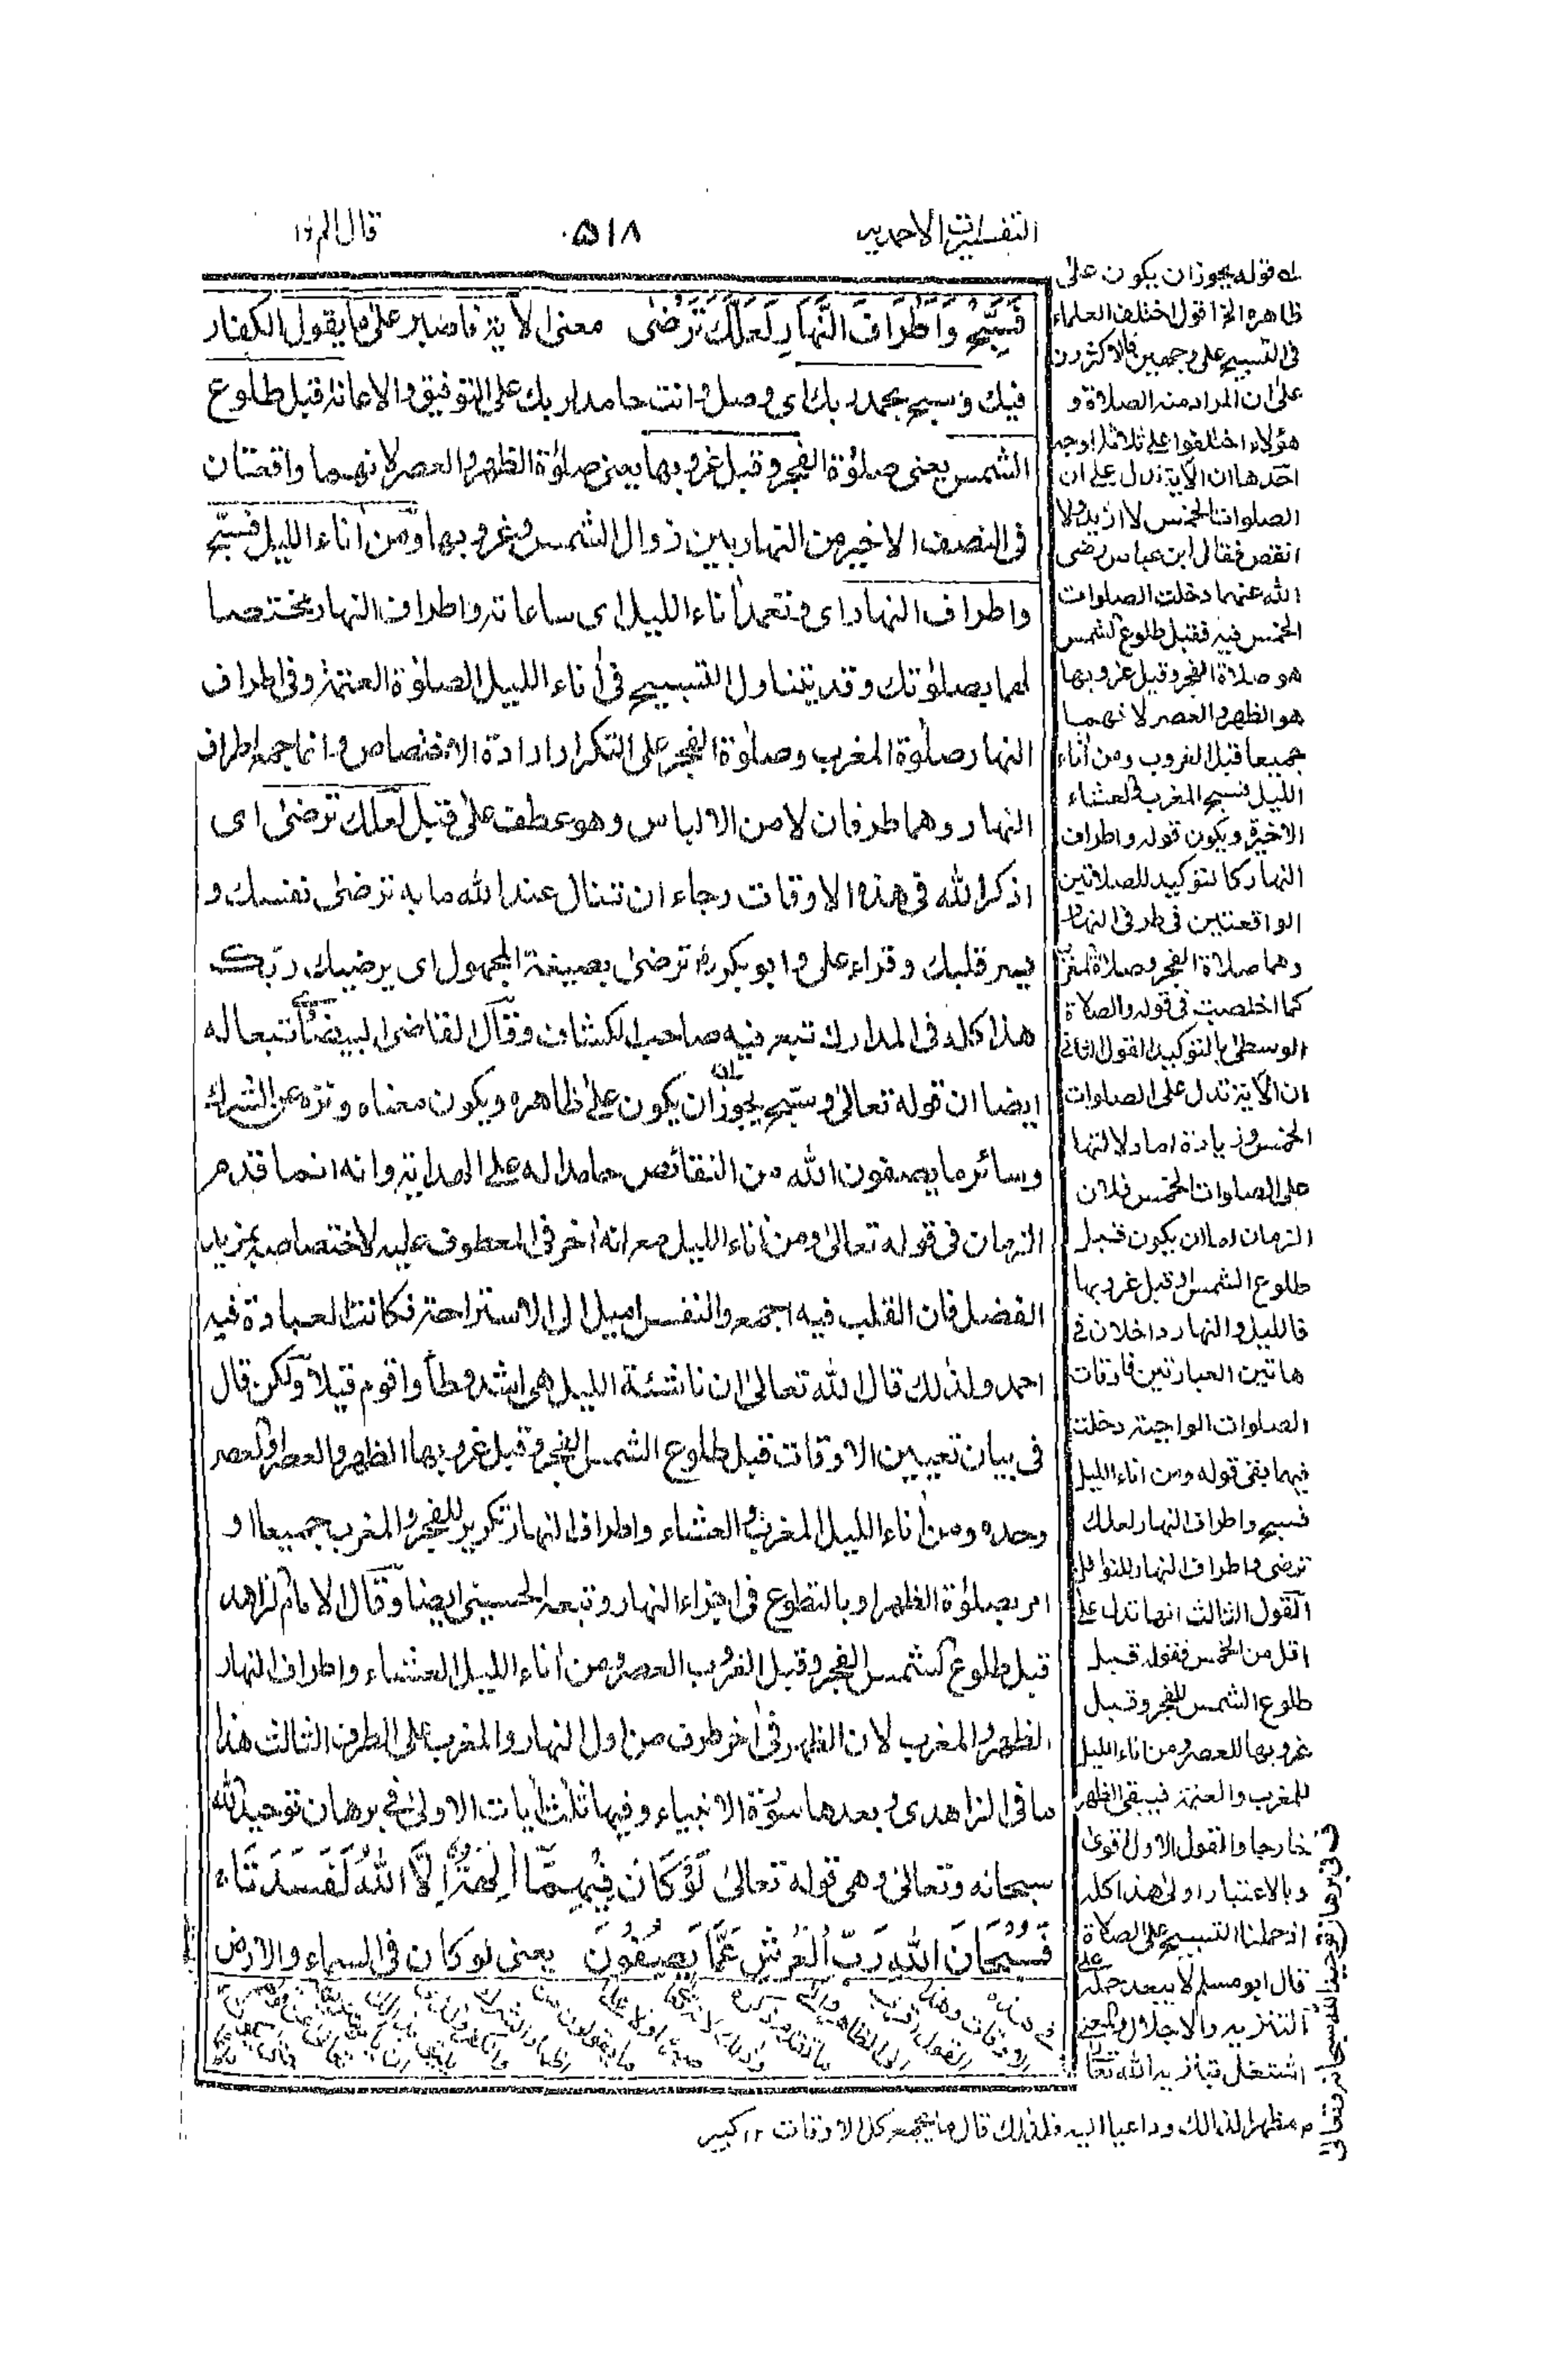 التفسيرات الاحمديه
٥١٨
قال الم ١٦
فَسَبِّحْ وَاَطْرَافَ النَّهَارِ لَعَلَّكَ تَرْضٰى معنى الاٰية فاصبر على ما يقول الكفار
فيك وسبح بحمد ربك اى وصل وانت حامد لربك على التوفيق والاعانة قبل طلوع
الشمس يعنى صلوٰة الفجر وقبل غروبها يعنى صلوٰة الظهر والعصر لانهما واقعتان
فى النصف الاخير من النهار بين زوال الشمس وغروبها ومن اٰناء الليل فسبح
واطراف النهار اى وتعمد اٰناء الليل اى ساعاته واطراف النهار مختصا
لهما بصلوٰتك وقد يتناول التسبيح فى اٰناء الليل الصلوٰة العتمة وفى اطراف
النهار صلوٰة المغرب وصلوٰة الفجر على التكرار ارادة الاختصاص وانما جمع اطراف
النهار وهما طرفان لامن الالباس وهو عطف على قبل لعلك ترضى اى
اذكر الله فى هذه الاوقات رجاء ان تنال عند الله ما به ترضى نفسك و
يسر قلبك وقراء على وابو بكر ترضى بصيغة المجهول اى يرضيك ربك
هذا كله فى المدارك تبع فيه صاحب الكشاف وقال القاضى البيضاوى تبعا له
ايضا ان قوله تعالىٰ وسبح يجوز ان يكون على ظاهره ويكون معناه ونزه عن الشرك
وسائر ما يصفون الله من النقائص حامدا له على الهداية وانه انما قدم
الزمان فى قوله تعالىٰ ومن اٰناء الليل مع انه اخر فى المعطوف عليه لاختصاصه بمزيد
الفضل فان القلب فيه اجمع والنفس اميل الى الاستراحة فكانت العبادة فيه
احمد ولذلك قال الله تعالىٰ ان ناشئة الليل هى اشد وطأ واقوم قيلا ولكن قال
فى بيان تعيين الاوقات قبل طلوع الشمس الفجر وقبل غروبها الظهر والعصر او العصر
وحده ومن اٰناء الليل المغرب والعشاء واطراف النهار تكرير للفجر والمغرب جميعا او
امر بصلوٰة الظهر او بالتطوع فى اجزاء النهار وتبعه الحسينى ايضا وقال الامام الزاهد
قبل طلوع الشمس الفجر وقبل الغروب العصر ومن اٰناء الليل العشاء واطراف النهار
الظهر والمغرب لان الظهر فى اٰخر طرف من اول النهار والمغرب على الطرف الثالث هذا
ما فى الزاهدى وبعدها سورة الانبياء وفيها ثلث اٰيات الاولىٰ فى برهان توحيد الله
سبحانه وتعالىٰ وهى قوله تعالىٰ لَوْ كَانَ فِيْهِمَا اٰلِهَةٌ اِلَّا اللهُ لَفَسَدَتَا
فَسُبْحَانَ اللهِ رَبِّ الْعَرْشِ عَمَّا يَصِفُوْنَ يعنى لو كان فى السماء والارض
له قوله يجوز ان يكون على
ظاهره الخ اقول اختلف العلماء
فى التسبيح على وجهين فالاكثرون
على ان المراد منه الصلاة و
هؤلاء اختلفوا على ثلاثة اوجه
احدها ان الاية تدل على ان
الصلوات الخمس لا ازيد ولا
انقص فقال ابن عباس رضى
الله عنهما دخلت الصلوات
الخمس فيه فقبل طلوع الشمس
هو صلاة الفجر وقبل غروبها
هو الظهر والعصر لانهما
جميعا قبل الغروب ومن اٰناء
الليل فسبح المغرب والعشاء
الاخيرة ويكون قوله واطراف
النهار كالتوكيد للصلاتين
الواقعتين فى طرفى النهار
وهما صلاة الفجر وصلاة المغرب
كما اختصت فى قوله والصلاة
الوسطى بالتوكيد القول الثانى
ان الاية تدل على الصلوات
الخمس وزيادة اما دلالتها
على الصلوات الخمس فلان
الزمان اما ان يكون قبل
طلوع الشمس او قبل غروبها
فالليل والنهار داخلان فى
هاتين العبارتين فاوقات
الصلوات الواجبة دخلت
فيهما بقى قوله ومن اناء الليل
فسبح واطراف النهار لعلك
ترضى واطراف النهار للنوافل
القول الثالث انها تدل على
اقل من الخمس فقوله قبل
طلوع الشمس للفجر وقبل
غروبها للعصر ومن اناء الليل
للمغرب والعتمة فيبقى الظهر
خارجا والقول الاول اقوى
وبالاعتبار اولى هذا كله
اذ حملنا التسبيح على الصلاة
قال ابو مسلم لا يبعد حمله على
التنزيه والاجلال والمعنى
اشتغل بتنزيه الله تعالى
مظهرا لذلك وداعيا اليه فلذلك قال ما يجمع كل الاوقات ١٢ كبير